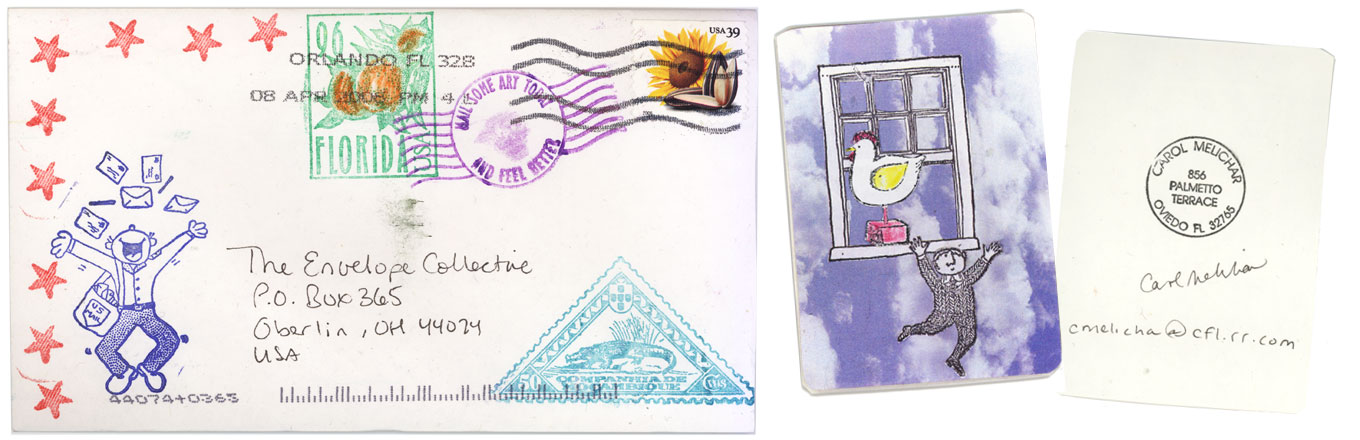 96
ORLANDO FL 328
08 APR 2006 PM 4
FLORIDA
USA
MAIL SOME ART TODAY
AND FEEL BETTER
USA 39
US
MAIL
The Envelope Collective
P.O. Box 365
Oberlin, OH 44074
USA
COMPANHIA DE
MOÇAMBIQUE
44074+0365
CAROL MELICHAR
856
PALMETTO
TERRACE
OVIEDO FL 32765
Carol Melichar
cmelicha@cfl.rr.com